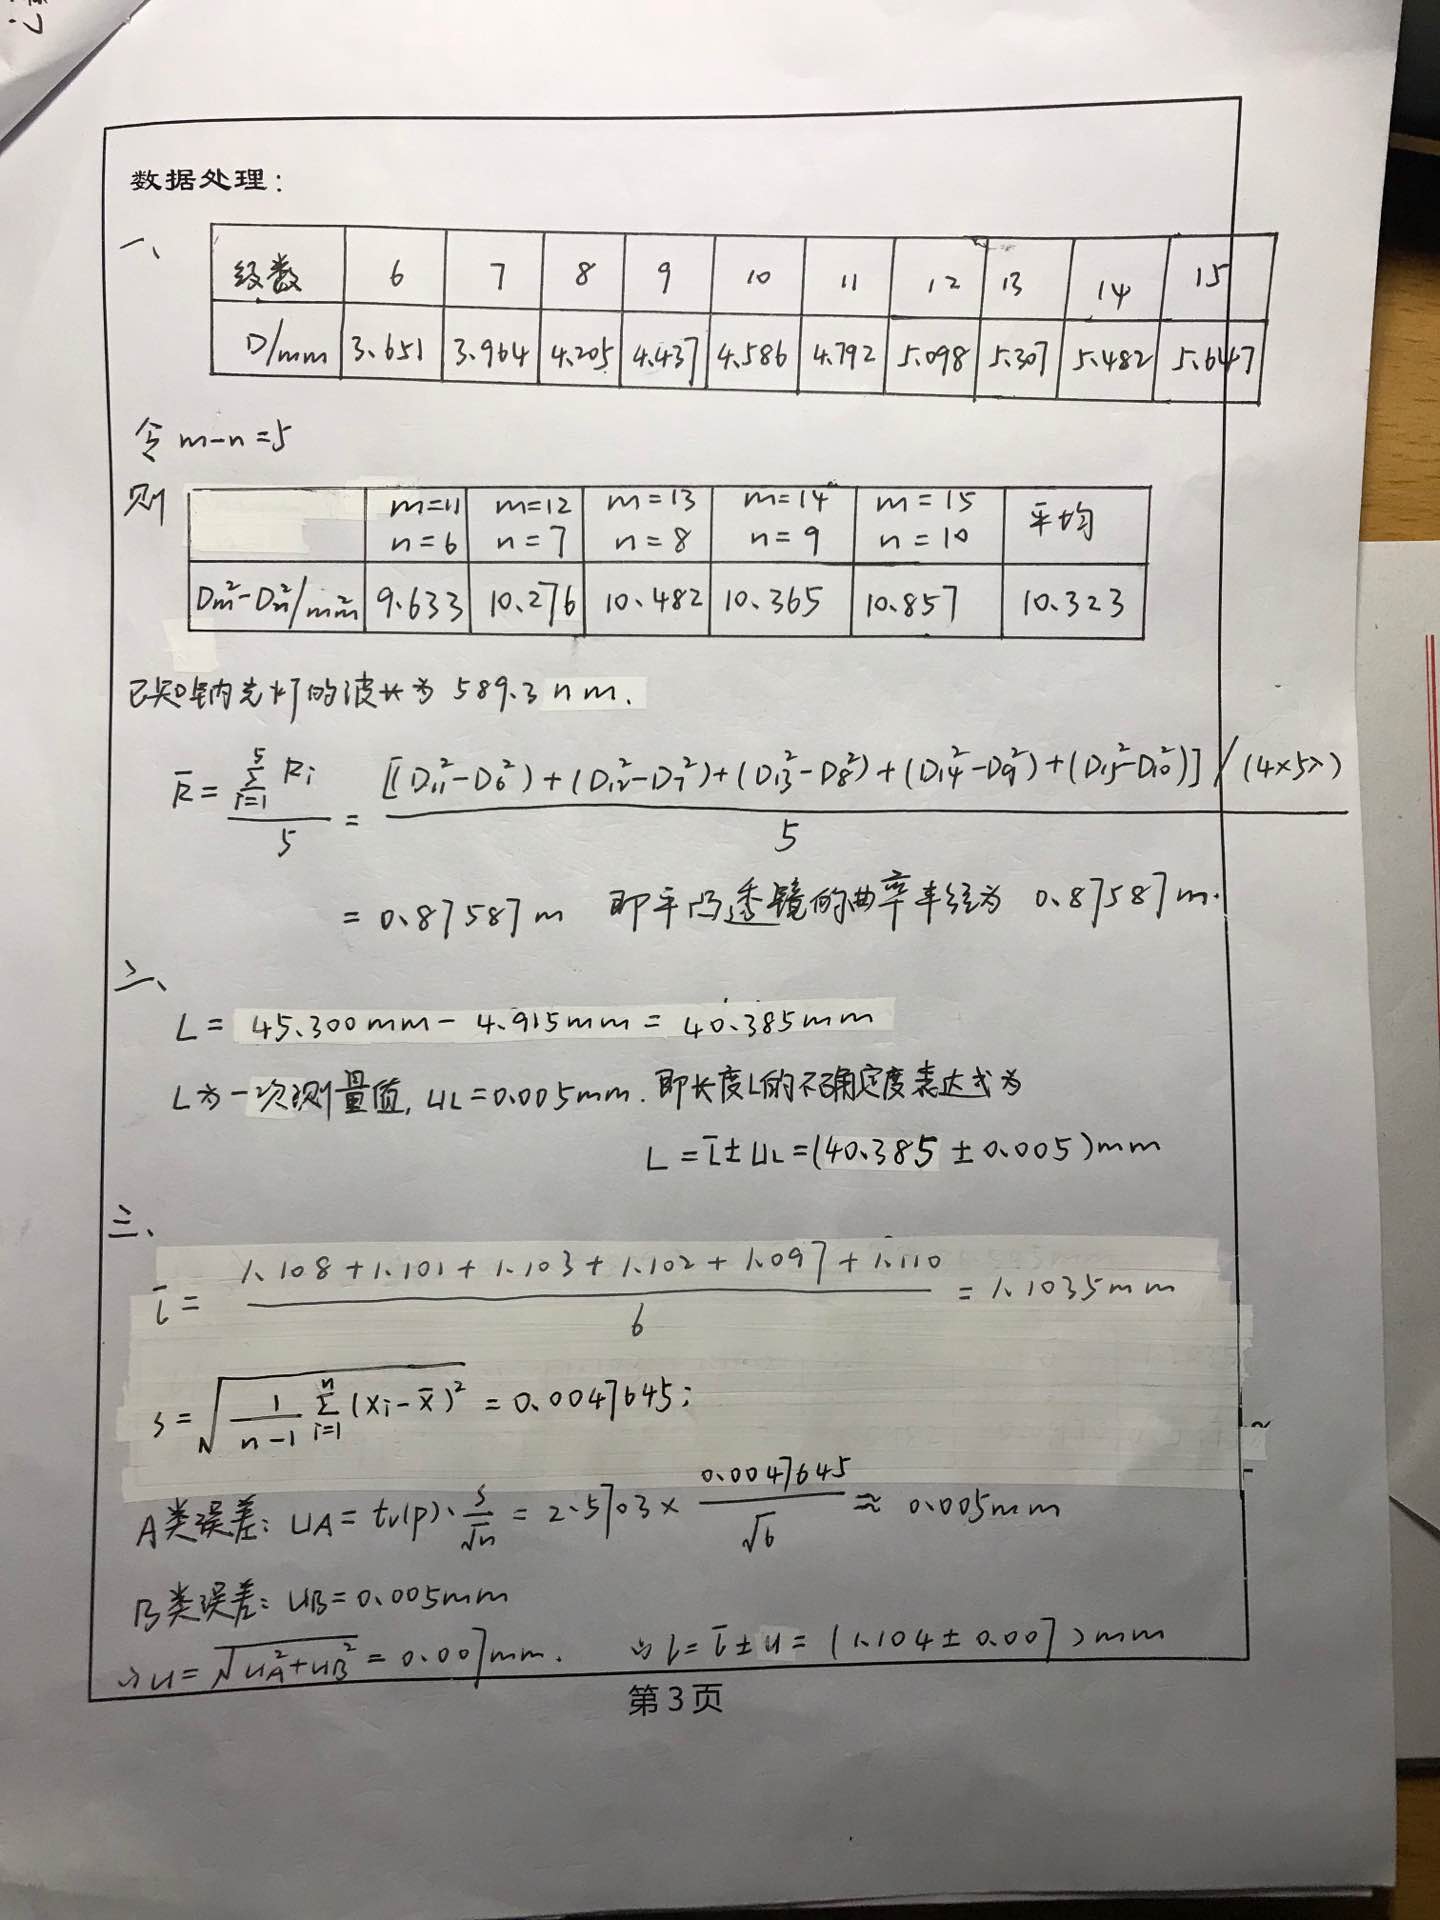 数据处理：
一、
级数 6 7 8 9 10 11 12 13 14 15
D/mm 3.651 3.964 4.205 4.437 4.586 4.792 5.098 5.307 5.482 5.647
令 m-n=5
则
m=11 m=12 m=13 m=14 m=15 平均
n=6 n=7 n=8 n=9 n=10
Dm²-Dn²/mm² 9.633 10.276 10.482 10.365 10.857 10.323
已知钠光灯的波长为 589.3nm.
R̄ = Σ(i=1→5) Ri / 5 = [(D₁₁²-D₆²)+(D₁₂²-D₇²)+(D₁₃²-D₈²)+(D₁₄²-D₉²)+(D₁₅²-D₁₀²)]/(4×5λ) / 5
= 0.87587m 即平凸透镜的曲率半径为 0.87587m.
二、
L = 45.300mm - 4.915mm = 40.385mm
L为一次测量值, uL=0.005mm. 即长度L的不确定度表达式为
L = l̄±uL = (40.385±0.005)mm
三、
l̄ = (1.108+1.101+1.103+1.102+1.097+1.110)/6 = 1.1035mm
s = √(1/(n-1) Σ(i=1→n) (xi-x̄)²) = 0.0047645;
A类误差: uA = tv(p)·s/√n = 2.5703 × 0.0047645/√6 ≈ 0.005mm
B类误差: uB=0.005mm
∴u = √(uA²+uB²) = 0.007mm. ∴ l=l̄±u=(1.104±0.007)mm
第3页